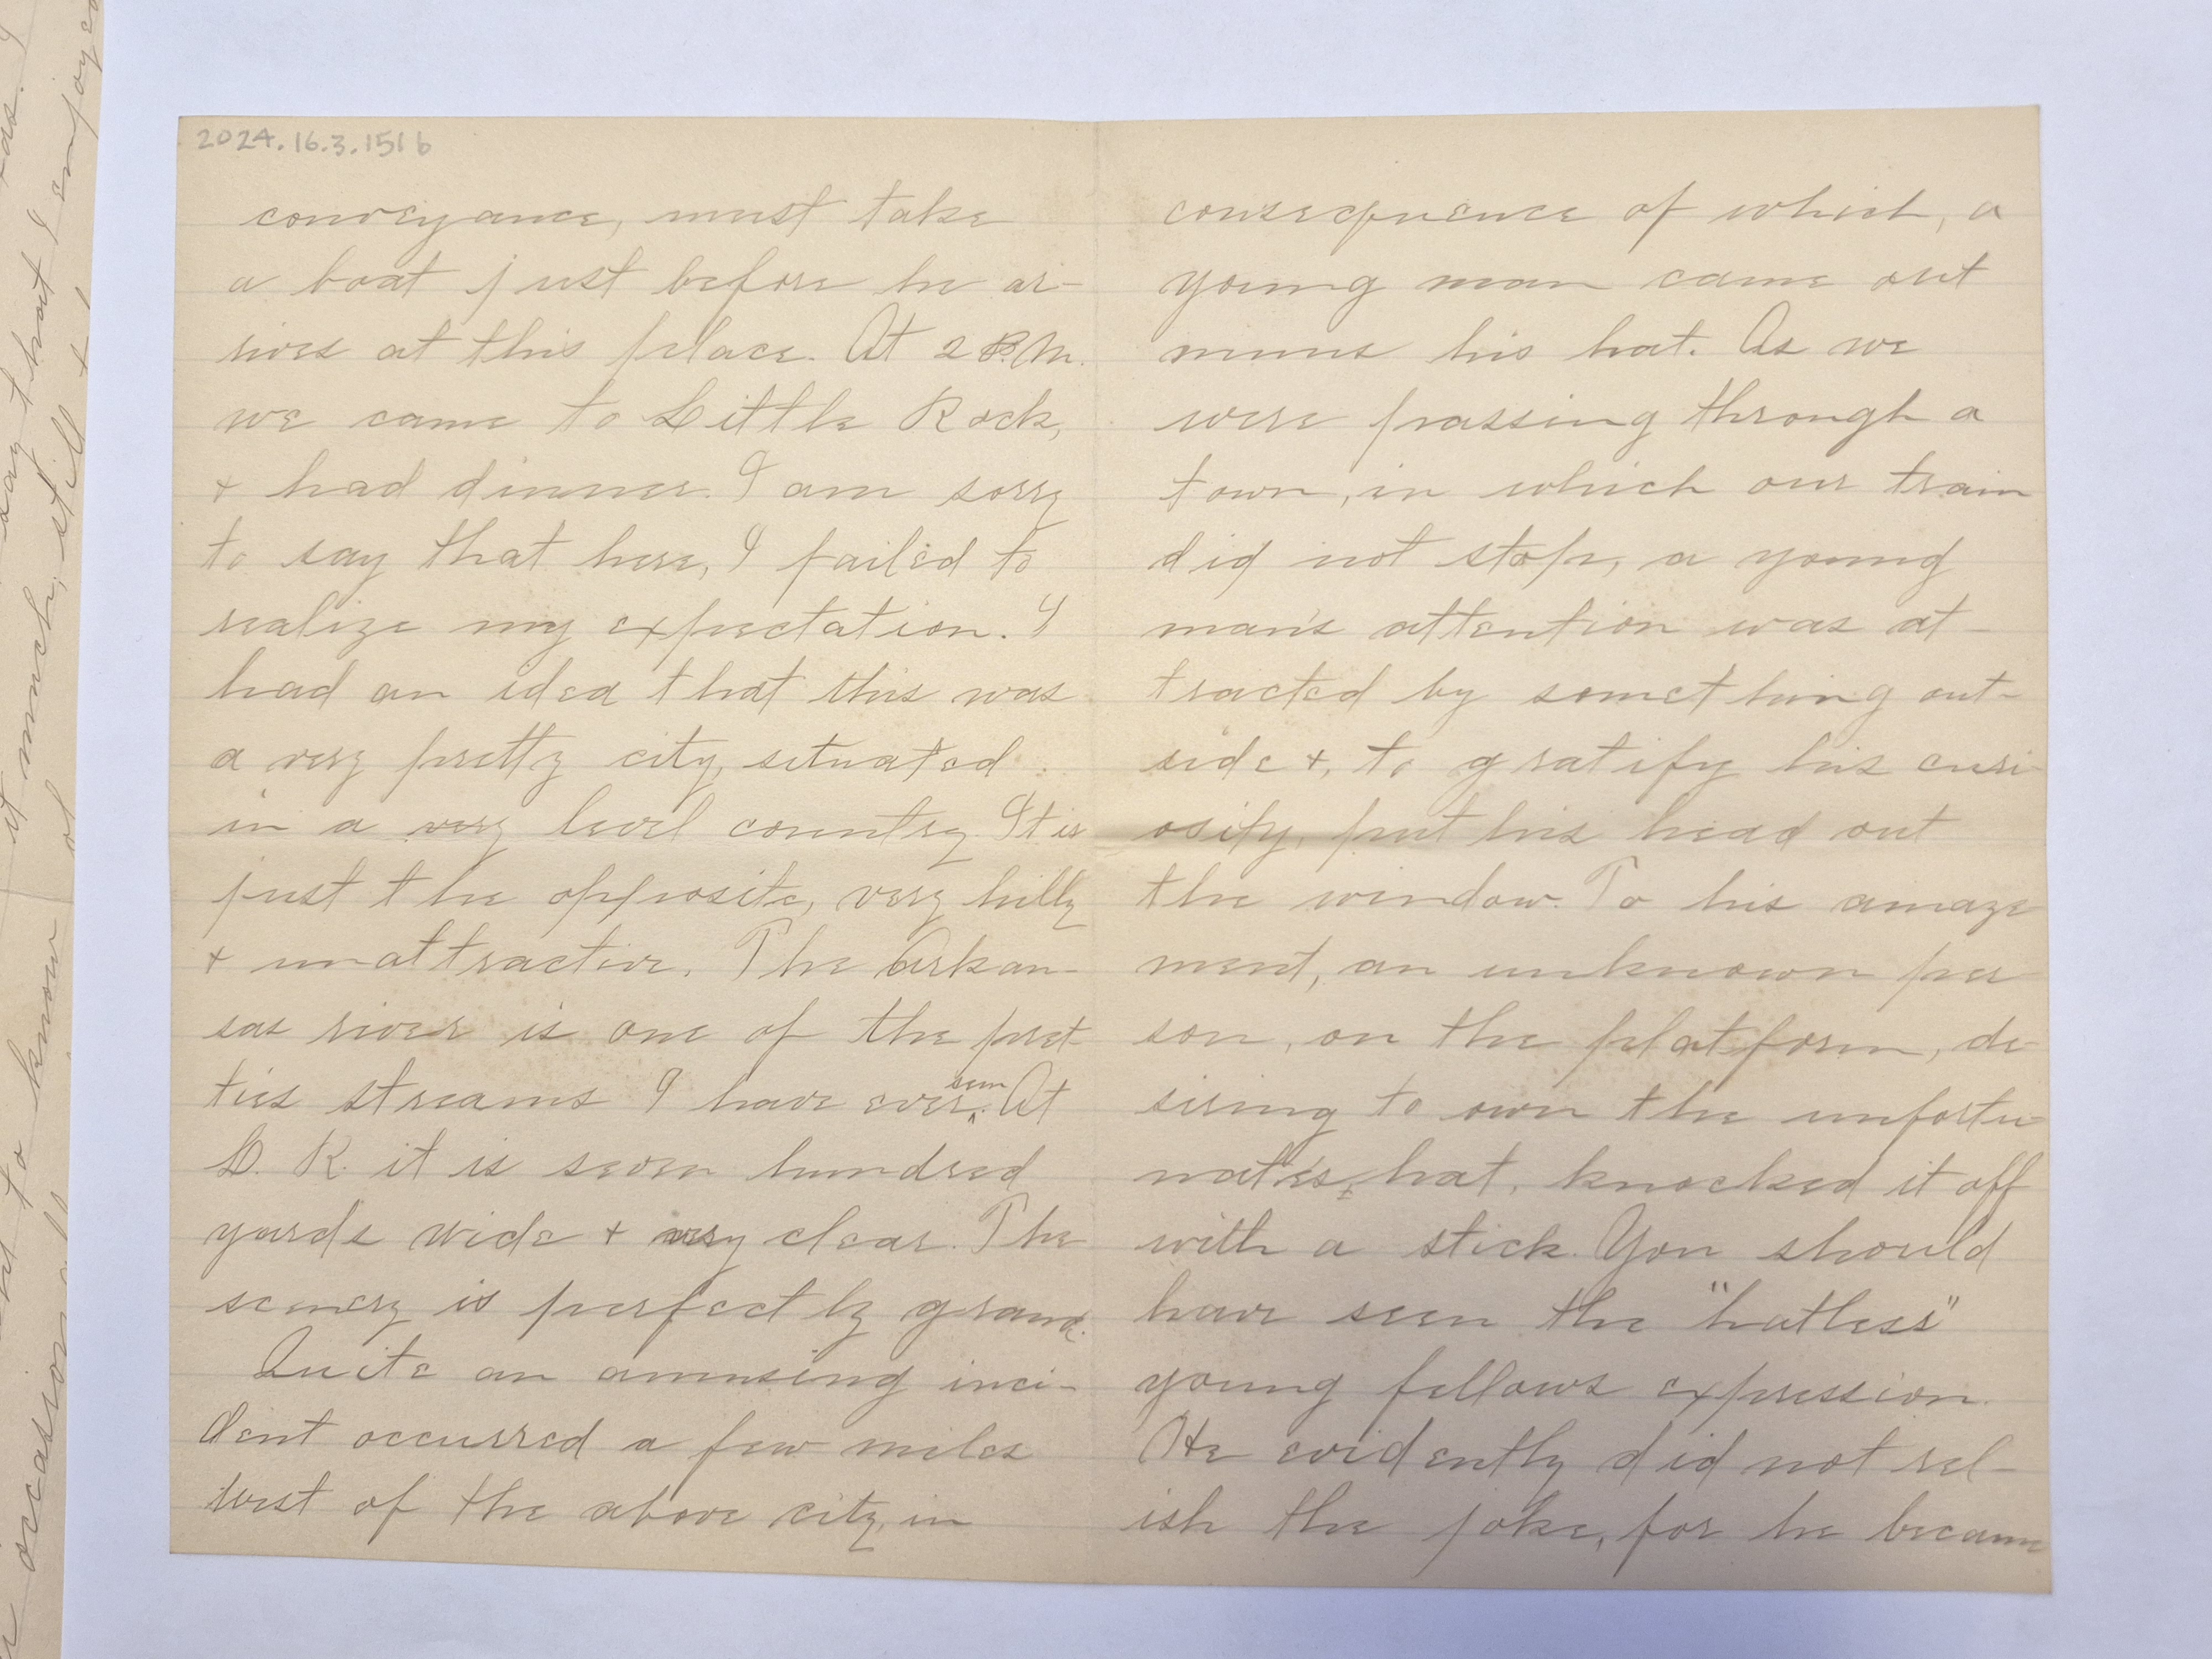 2024.16.3.151 b
conveyance, must take
a boat just before he ar-
rives at this place. At 2 P.M.
we came to Little Rock,
+ had dinner. I am sorry
to say that here, I failed to
realize my expectation. I
had an idea that this was
a very pretty city, situated
in a very level country. It is
just the opposite, very hilly
+ unattractive. The Arkan-
sas river is one of the pret-
ties streams I have ever seen. At
L. R. it is seven hundred
yards wide + very clear. The
scenery is perfectly grand.
Quite an amusing inci-
dent occurred a few miles
west of the above city, in
consequence of which, a
young man came out
minus his hat. As we
were passing through a
town, in which our train
did not stop, a young
man's attention was at-
tracted by something out-
side +, to gratify his curi-
osity, put his head out
the window. To his amaze
ment, an unknown per
son, on the platform, de-
siring to own the unfortu-
nate's hat, knocked it off
with a stick. You should
have seen the "hatless"
young fellows expression.
He evidently did not rel-
ish the joke, for he became
say that I enjoyed
it much, still
to know of
occasion